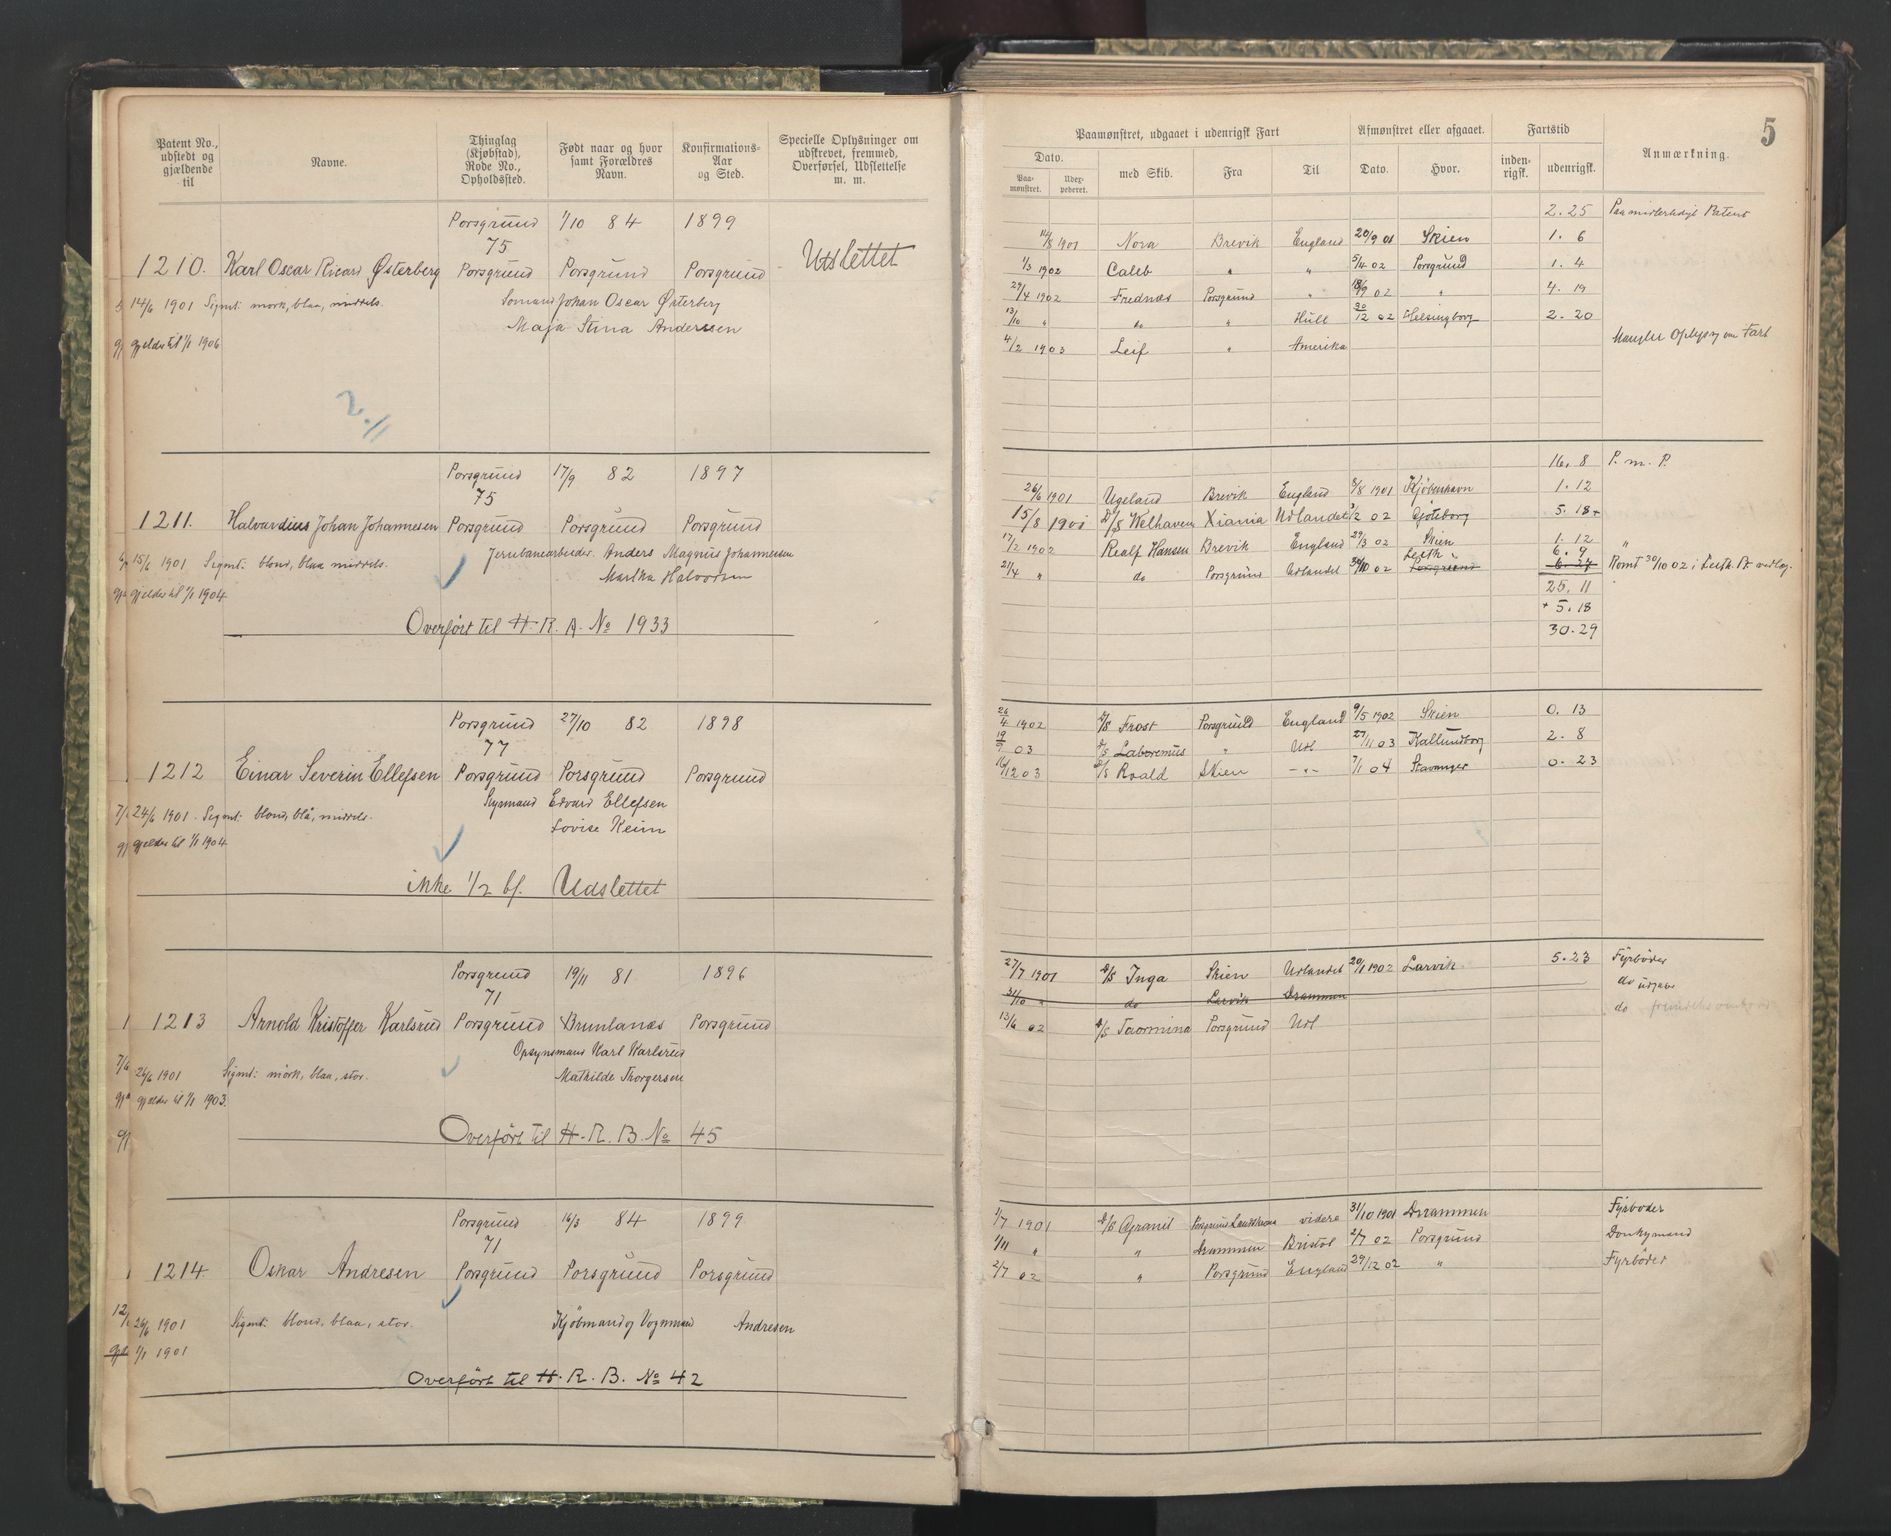 Patent No., udstedt og gjældende til
Navne.
Thinglag (Kjøbstad), Rode No., Opholdssted.
Født naar og hvor samt Forældres Navn.
Konfirmations-Aar og Sted.
Specielle Oplysninger om udskrevet, fremmed, Overførsel, Udslettelse m. m.
Porsgrund 1/10 84 1899
75
1210. Karl Oscar Ricard Østerberg Porsgrund Porsgrund Porsgrund Utslettet
14/6 1901 Signt: mørk, blaa, middels. Sømand Johan Oscar Østerberg
Maja Stina Anderssen
gjelder til 1/1 1906
2.11
Porsgrund 17/9 82 1897
75
1211. Halvardius Johan Johannesen Porsgrund Porsgrund Porsgrund
15/6 1901 Signt: blond, blaa middels. Jernbanearbeider. Anders Magnus Johannessen
Martha Halvorsen
gjelder til 1/1 1904.
Overført til H. R. A. No 1933
Porsgrund 27/10 82 1898
77
1212 Einar Severin Ellefsen Porsgrund Porsgrund Porsgrund
Edvard Ellefsen
24/6 1901. Signt: blond, blå, middels.
Lovise Keim
gjelder til 1/1 1904.
ikke 1/2 bf. Udslettet
Porsgrund 19/11 81 1896
71
1213 Arnold Kristoffer Karlsrud Porsgrund Brunlanæs Porsgrund
Opsynsmand Karl Karlsrud
26/6 1901 Signt: mørk, blaa, stor. Mathilde Thorgersen
gjelder til 1/1 1903.
Overført til H. R. B. No 45
Porsgrund 16/3 84 1899
71
1214. Oskar Andresen Porsgrund Porsgrund Porsgrund
26/6 1901 Signt: blond, blaa, stor. Kjøbmand og Vognmand Andresen
1/1 1901
Overført til H. R. B. No 42
5
Paamønstret, udgaaet i udenrigsk Fart
Afmønstret eller afgaaet.
Fartstid
Anmærkning.
Dato.
Paa-mønstret.
Udex-pederet.
med Skib.
Fra
Til
Dato.
Hvor.
inden-rigsk.
udenrigsk.
2.25 Paa midlertidigt Patent
1901 Nora Brevik England 20/9 01 Skien 1. 6
1/3 1902 Caleb " " 5/4 02 Porsgrund 1. 4
29/4 1902 Frednæs Porsgrund " 18/9 02 " 4. 19
13/10 " do " Hull 30/12 02 Helsingborg 2. 20
4/2 1903 Leif " Amerika Mangler Oplysng om Fart
16. 8 P. m. P.
26/6 1901 Ugeland Brevik England 8/8 1901 Kjøbenhavn 1. 12
15/8 1901 D/S Welhaven Xiania Udlandet 2 02 Gøteborg 5. 18+
17/2 1902 Realf Hansen Brevik England 29/3 02 Skien 1. 12 "
Leith 6. 9
21/4 " do Porsgrund Udlandet 30/10 02 Porsgrund 6. 27 Rømt 30/10 02 i Leith.
25. 11
+ 5. 18
30. 29
26/4 1902 D/S Frost Porsgrund England 9/5 1902 Skien 0. 13
19/9 03 D/S Laboremus " Udl 27/11 03 Kallundborg 2. 8
16/12 03 D/S Roald Skien -"- 7/1 04 Stavanger 0. 23
27/7 1901 D/S Inga Skien Udlandet 20/1 1902 Larvik 5. 23 Fyrbøder
31/10 " do Larvik Drammen do udgaar
13/6 02 D/S Taormina Porsgrund Udl do
1/7 1901 D/S Granit videre 31/10 1901 Drammen Fyrbøder
1/11 " " Drammen Bristol 2/7 02 Porsgrund Donkymand
2/7 02 " Porsgrund England 29/12 02 " Fyrbøder